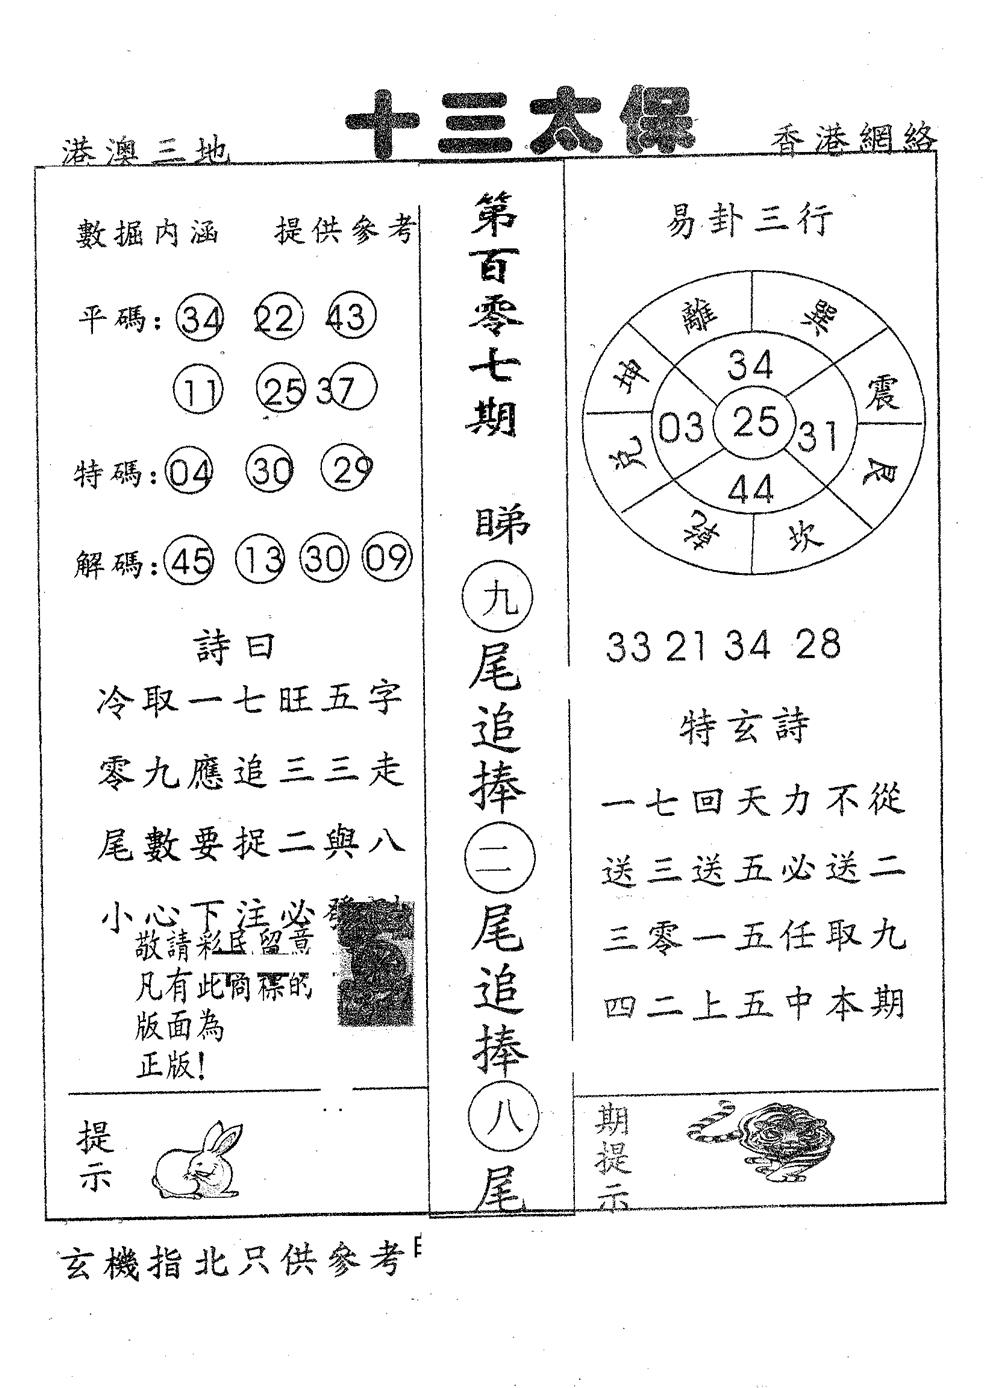 十三太保
港澳三地
香港網絡
數掘内涵 提供參考
平碼：34 22 43
11 25 37
特碼：04 30 29
解碼：45 13 30 09
詩曰
冷取一七旺五字
零九應追三三走
尾數要捉二與八
小心下注必發
敬請彩民留意
凡有此商標的
版面為
正版！
提示
第百零七期
睇九尾追捧二尾追捧八尾
易卦三行
離 巽 震 艮 坎 乾 兌 坤
34
03 25 31
44
33 21 34 28
特玄詩
一七回天力不從
送三送五必送二
三零一五任取九
四二上五中本期
期提示
玄機指北只供參考